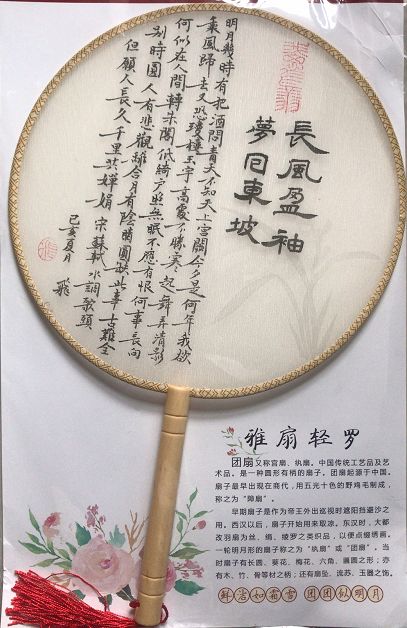 長風盈袖
夢回東坡
明月幾時有把酒問青天不知天上宮闕今夕是何年我欲
乘風歸去又恐瓊樓玉宇高處不勝寒起舞弄清影
何似在人間轉朱閣低綺戶照無眠不應有恨何事長向
別時圓人有悲歡離合月有陰晴圓缺此事古難全
但願人長久千里共嬋娟 宋蘇軾水調歌頭
己亥夏月 飛
雅扇轻罗
团扇又称宫扇、纨扇。中国传统工艺品及艺
术品。是一种圆形有柄的扇子。团扇起源于中国。
扇子最早出现在商代，用五光十色的野鸡毛制成，
称之为“障扇”。
早期扇子是作为帝王外出巡视时遮阳挡避沙之
用。西汉以后，扇子开始用来取凉。东汉时，大都
改羽扇为丝、绢、绫罗之类织品，以便点缀绣画。
一轮明月形的扇子称之为“纨扇”或“团扇”。当
时扇子有长圆、葵花、梅花、六角、匾圆之形；亦
有木、竹、骨等材之柄；还有扇坠、流苏、玉器之饰。
鲜洁如霜雪 团团似明月